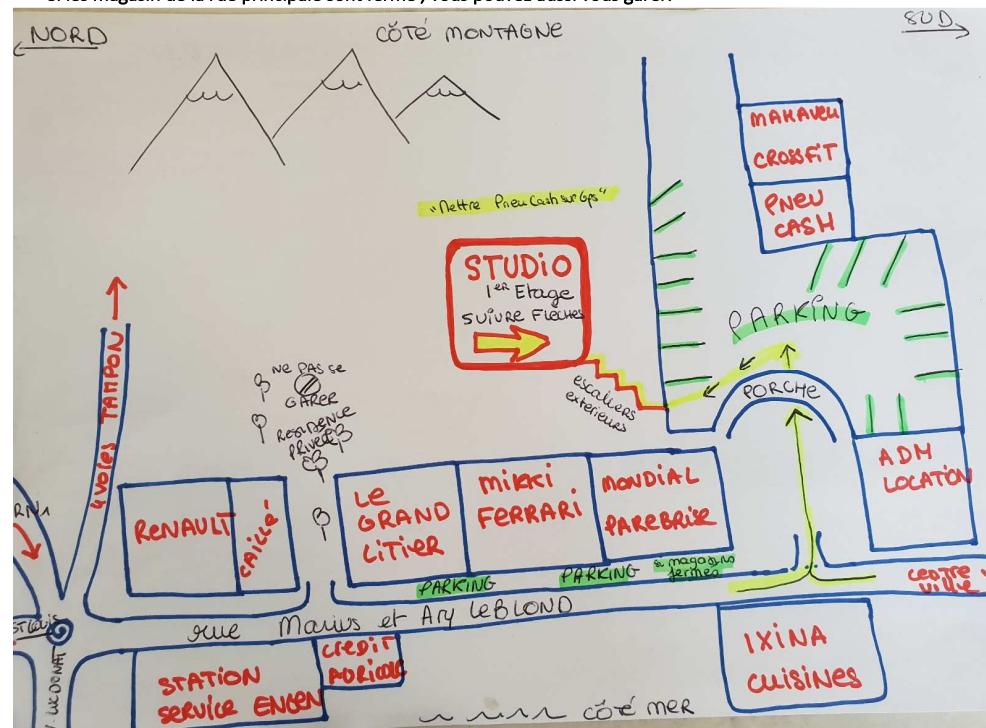 NORD
CÔTÉ MONTAGNE
SUD
MAKAVELI
CROSSFIT
PNEU
CASH
"Mettre PneuCash sur Gps"
STUDIO
1ER Etage
SUIVRE FLÈCHES
PARKING
PORCHE
escaliers
extérieurs
4 voies TAMPON
NE PAS SE
GARER
RESIDENCE
PRIVÉE
RN1
RENAULT
CAILLE
LE
GRAND
LITIER
MIKKI
FERRARI
MONDIAL
PAREBRISE
ADM
LOCATION
PARKING
PARKING
si magasins
fermés
CENTRE
VILLE
ST LOUIS
rue Marius et Ary LEBLOND
LUC DONAT
STATION
SERVICE ENGEN
CREDIT
AGRICOLE
IXINA
CUISINES
CÔTÉ MER